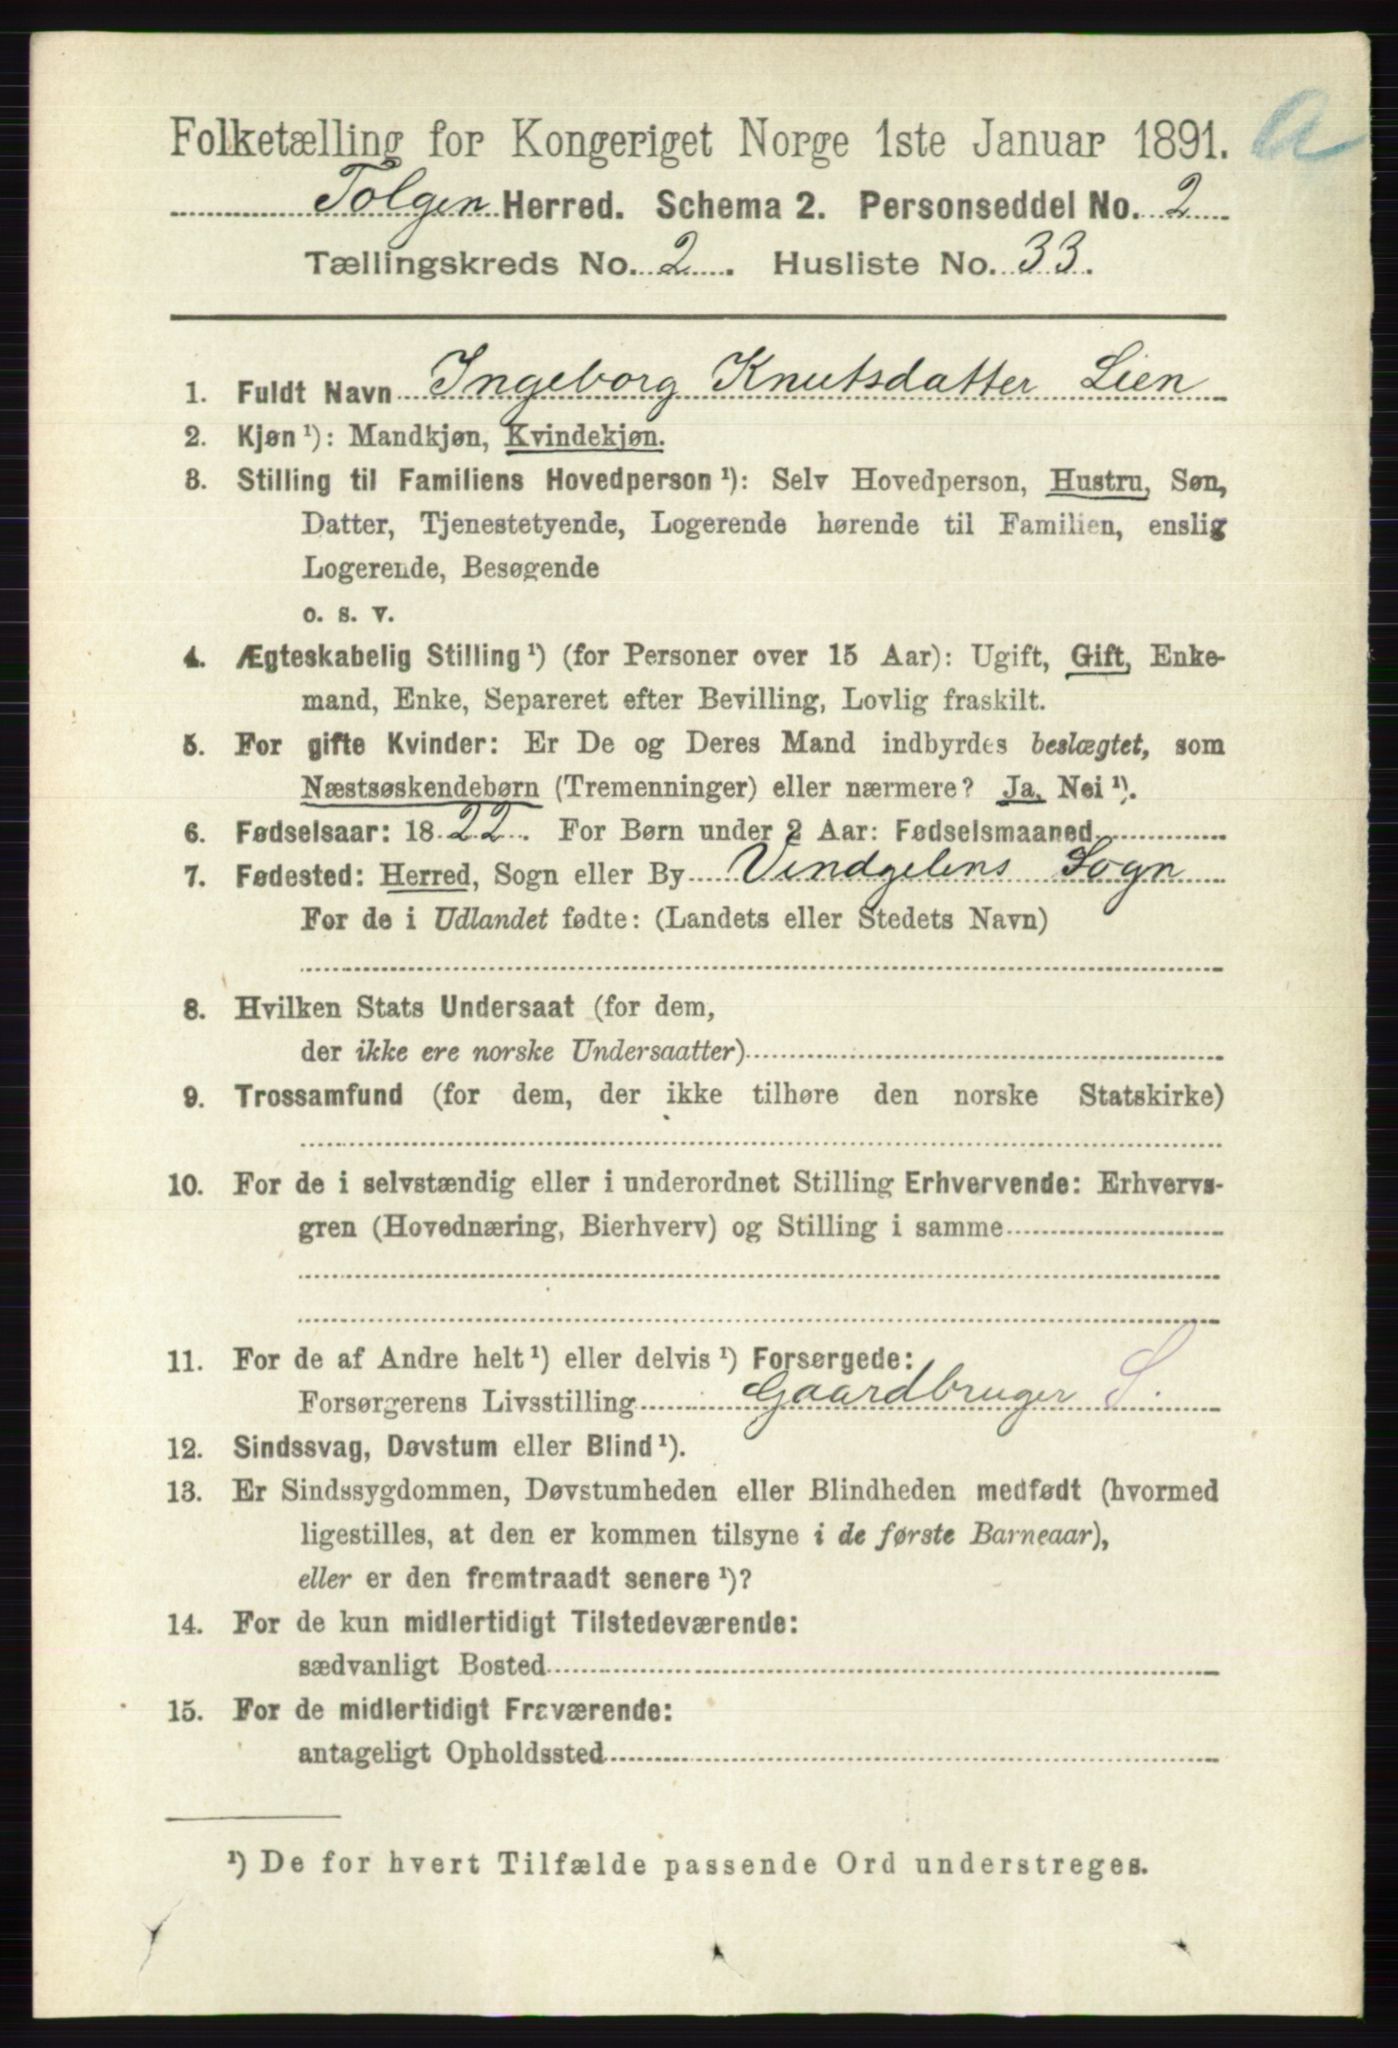 Folketælling for Kongeriget Norge 1ste Januar 1891. a
Tolgen Herred. Schema 2. Personseddel No. 2
Tællingskreds No. 2. Husliste No. 33.
1. Fuldt Navn Ingeborg Knutsdatter Lien
2. Kjøn ¹): Mandkjøn, Kvindekjøn.
3. Stilling til Familiens Hovedperson ¹): Selv Hovedperson, Hustru, Søn,
Datter, Tjenestetyende, Logerende hørende til Familien, enslig
Logerende, Besøgende
o. s. v.
4. Ægteskabelig Stilling ¹) (for Personer over 15 Aar): Ugift, Gift, Enke-
mand, Enke, Separeret efter Bevilling, Lovlig fraskilt.
5. For gifte Kvinder: Er De og Deres Mand indbyrdes beslægtet, som
Næstsøskendebørn (Tremenninger) eller nærmere? Ja, Nei ¹).
6. Fødselsaar: 1822. For Børn under 2 Aar: Fødselsmaaned
7. Fødested: Herred, Sogn eller By Vindgelens Sogn
For de i Udlandet fødte: (Landets eller Stedets Navn)
8. Hvilken Stats Undersaat (for dem,
der ikke ere norske Undersaatter)
9. Trossamfund (for dem, der ikke tilhøre den norske Statskirke)
10. For de i selvstændig eller i underordnet Stilling Erhvervende: Erhvervs-
gren (Hovednæring, Bierhverv) og Stilling i samme
11. For de af Andre helt ¹) eller delvis ¹) Forsørgede:
Forsørgerens Livsstilling Gaardbruger S.
12. Sindssvag, Døvstum eller Blind ¹).
13. Er Sindssygdommen, Døvstumheden eller Blindheden medfødt (hvormed
ligestilles, at den er kommen tilsyne i de første Barneaar),
eller er den fremtraadt senere ¹)?
14. For de kun midlertidigt Tilstedeværende:
sædvanligt Bosted
15. For de midlertidigt Fraværende:
antageligt Opholdssted
¹) De for hvert Tilfælde passende Ord understreges.